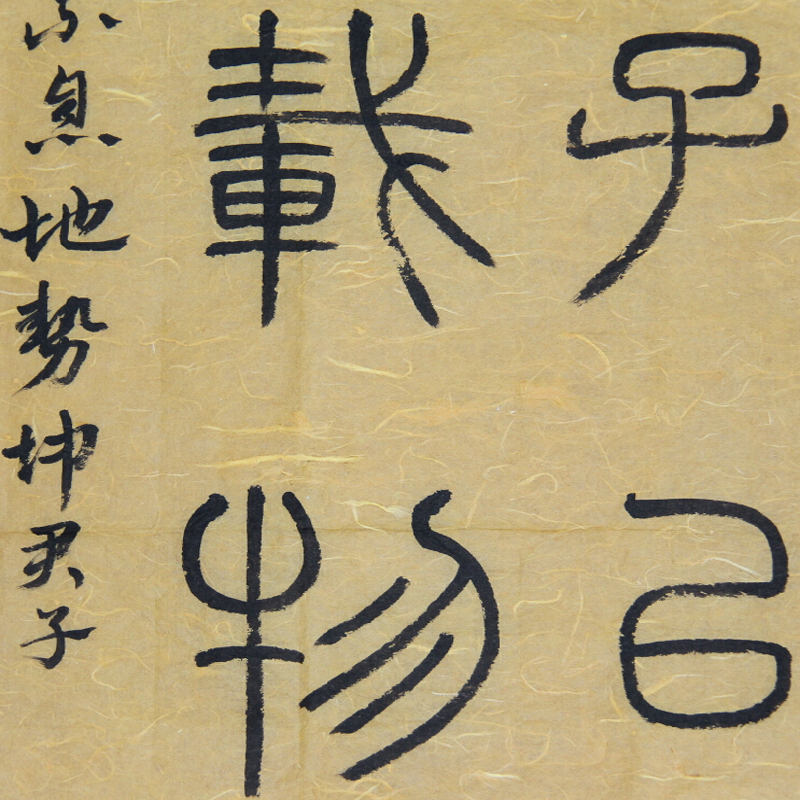 子以
載物
不息地勢坤君子